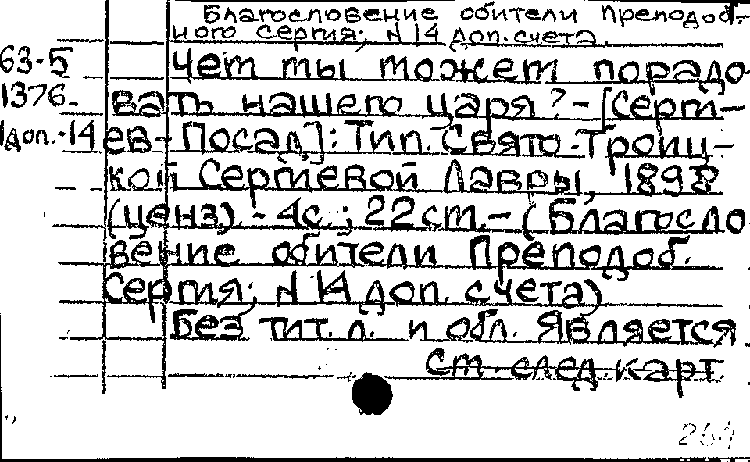 Благословение обители Преподоб-
ного Сергия; N 14 доп. счета.
63-5 Чем ты можешь порадо-
1376- вать нашего царя? - [Серги-
1 доп.-14 ев-Посад]: Тип. Свято-Троиц-
кой Сергиевой Лавры, 1898
(ценз). - 4с.; 22 см. - (Благосло
вение обители Преподоб.
Сергия; N 14 доп. счета)
Без тит. л. и обл. Является
см. след. карт
264